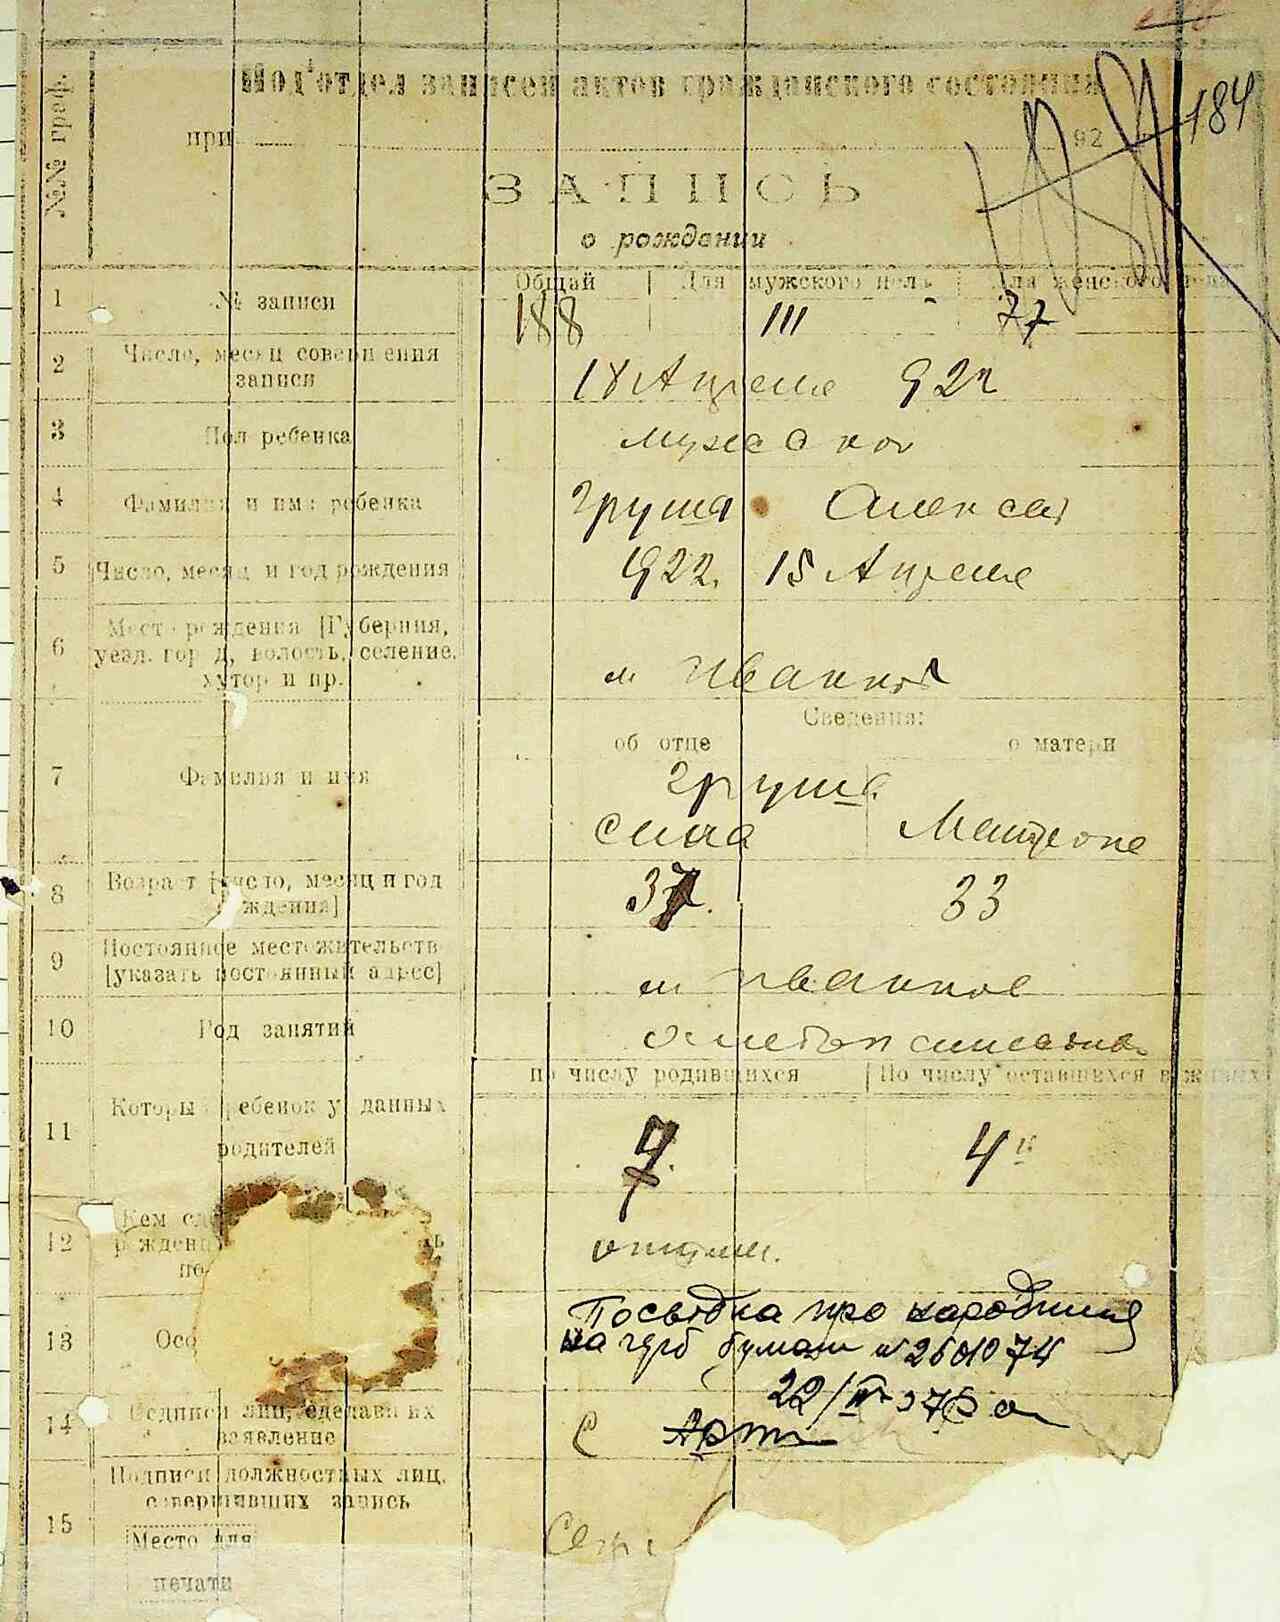 184
Подотдел записей актов гражданского состояния
№№ граф.
при 92
ЗАПИСЬ
о рождении
1 № записи
Общий Для мужского пола Для женского пола
188 111 77
2 Число, месяц совершения записи
18 Апреля 922
3 Пол ребенка
мужской
4 Фамилия и имя ребенка
Груша Алексей
5 Число, месяц и год рождения
1922. 15 Апреля
6 Место рождения [Губерния, уезд. город, волость, селение, хутор и пр.
м Иванков
Сведения:
об отце о матери
7 Фамилия и имя
Груша
Сила Матрона
8 Возраст [число, месяц и год рождения]
37. 33
9 Постоянное местожительств [указать постоянный адрес]
м Иванков
10 Род занятий
по числу родившихся По числу оставшихся в живых
11 Который ребенок у данных родителей
7. 4й
12 Кем
отцом.
13 Осо
Посвідка про народження
на герб бумаги № 2601074
14 Подписи лиц, сделавших заявление
С
15 Подписи должностных лиц, совершивших запись
Место для
печати